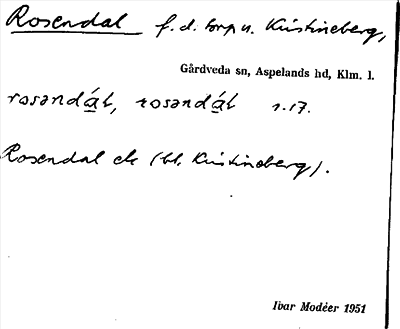 Rosendal f. d. torp u. Kristineberg,
Gårdveda sn, Aspelands hd, Klm. l.
rosəndạ́l, rosəndạ́l r.17.
Rosendal ek (bl. Kristineberg).
Ivar Modéer 1951